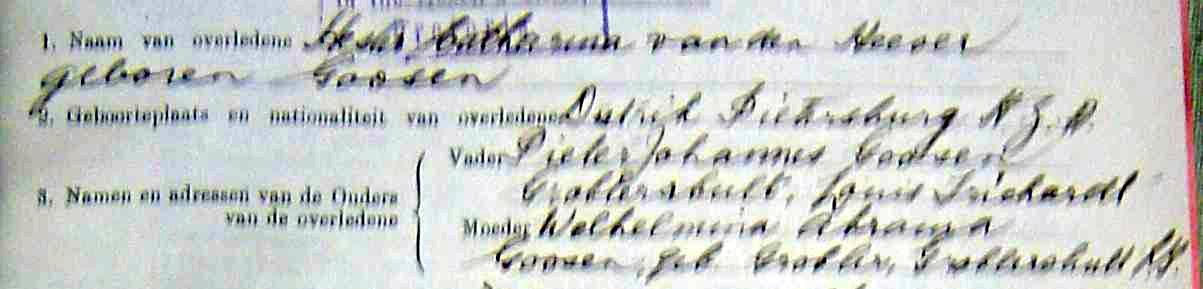 1. Naam van overledene Hester Catharina van den Heever
geboren Goosen
2. Geboorteplaats en nationaliteit van overledene Distrik Pietersburg N.Z.A.
Vader Pieter Johannes Goosen
3. Namen en adressen van de Ouders Groblersbult, Louis Trichardt
van de overledene Moeder Welhelmina Abrama
Goosen, geb. Grobler, Groblersbult